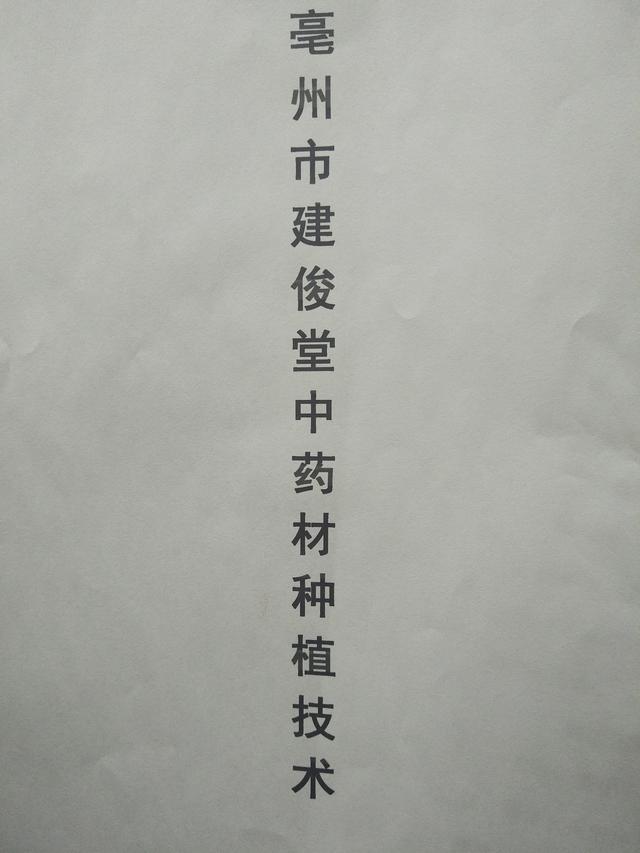 亳州市建俊堂中药材种植技术